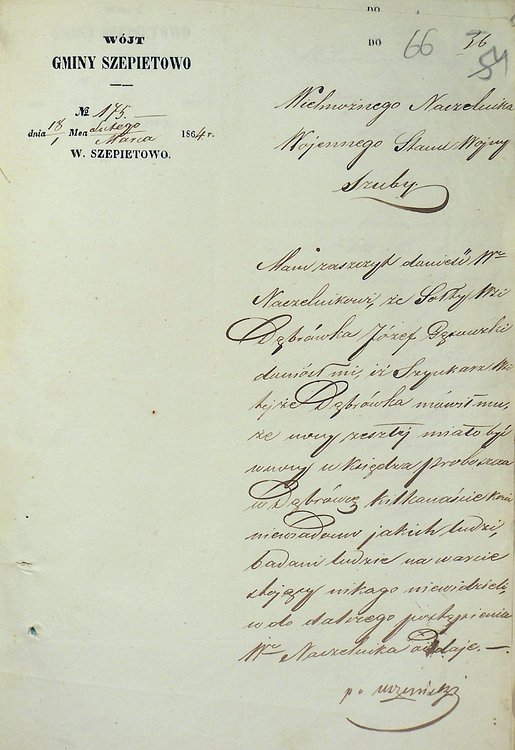 DO
WÓJT
GMINY SZEPIETOWO
№ 175.
dnia 18/1 Mca Lutego/Marca 1864 r.
W. SZEPIETOWO.
DO
66
54
Wielmożnego Naczelnika
Wojennego Stanu Wojny
Mam zaszczyt donieść Wu
Naczelnikowi, że Sołtys Wsi
Dąbrówka Józef
doniósł mi, iż Szynkarz Wsi
tejże Dąbrówka mówił mu,
że nocy zeszłej miało być
w nocy u Księdza proboszcza
w Dąbrówce kilkanaście koni
niewiadomo jakich ludzi,
badani ludzie na warcie
stojący nikogo niewidzieli,
w do dalszego postąpienia
Wu Naczelnika oddaje. —